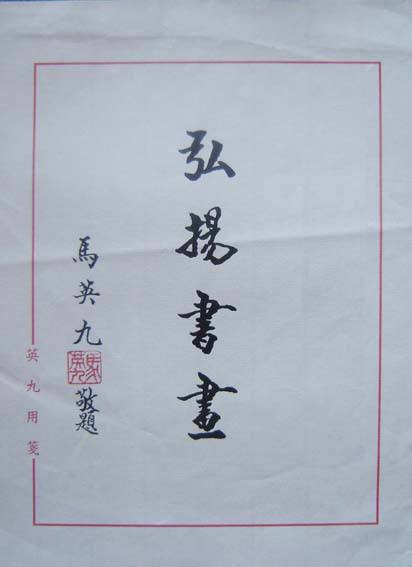 弘揚書畫
馬英九
馬英九
敬題
英九用箋